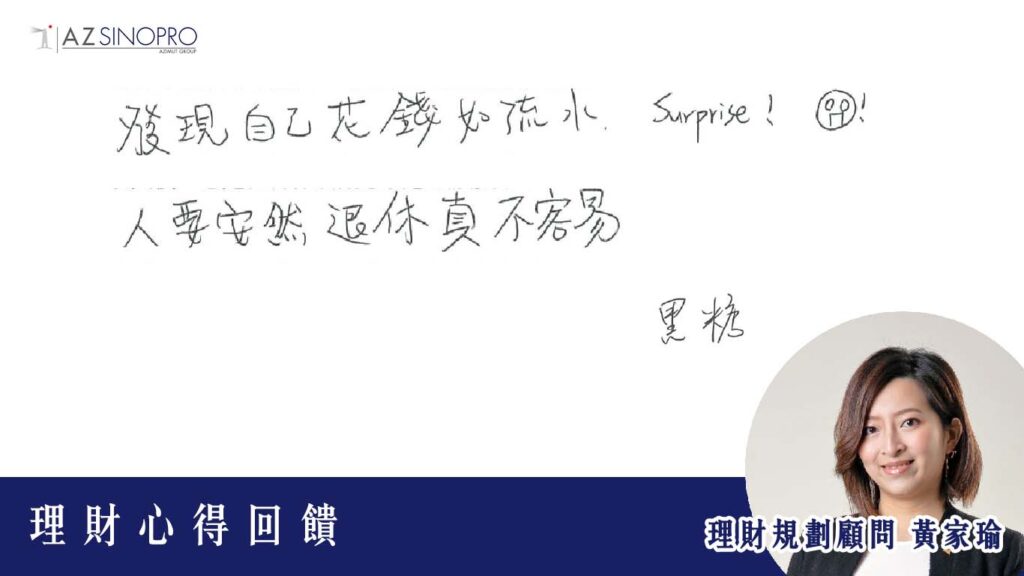 AZ SINOPRO
AZIMUT GROUP
發現自己花錢如流水. Surprise! !
人要安然退休真不容易
黑糖
理財心得回饋
理財規劃顧問 黃家瑜